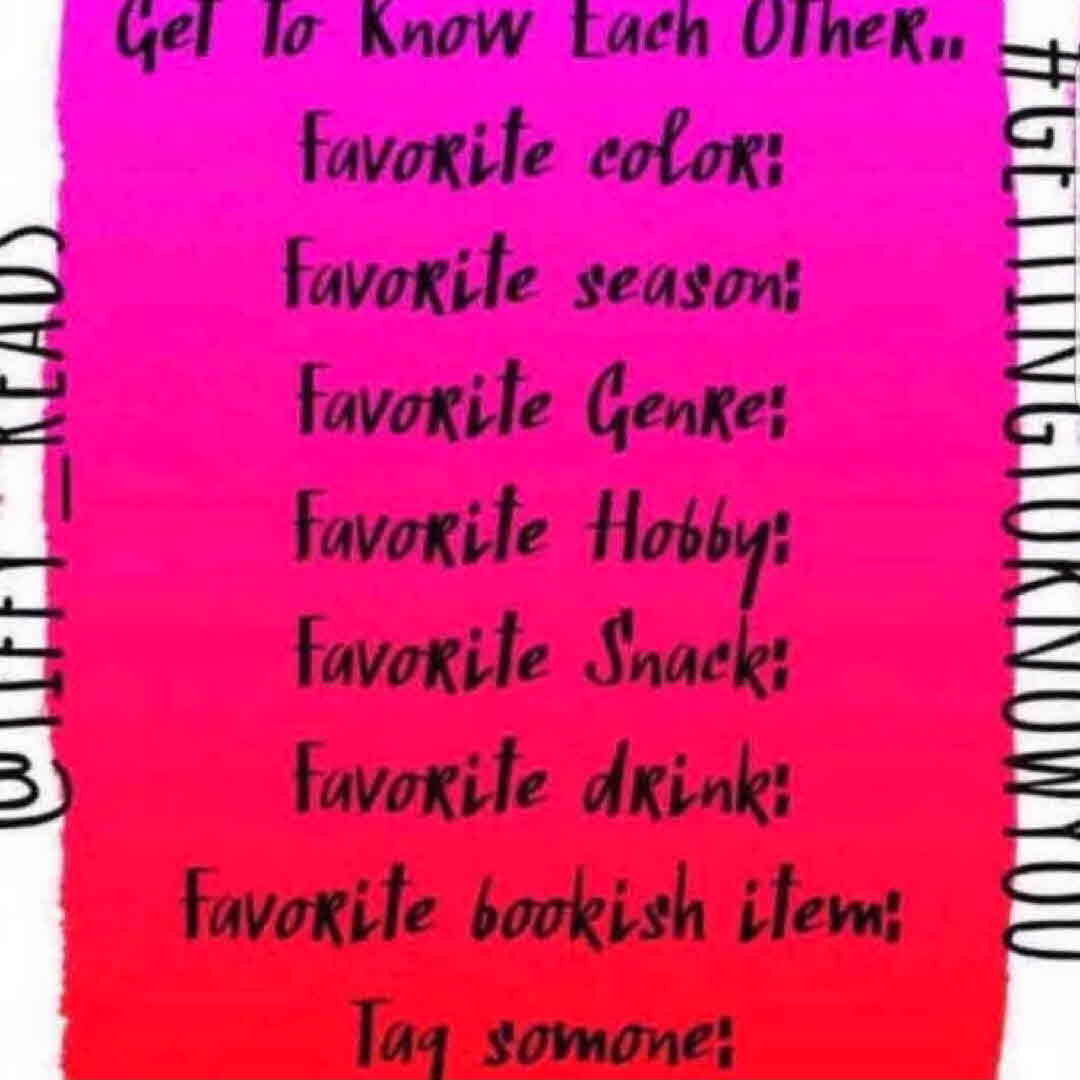 Get To Know Each Other..
Favorite color:
Favorite season:
Favorite Genre:
Favorite Hobby:
Favorite Snack:
Favorite drink:
Favorite bookish item:
Tag somone:
@TIFFY_READS
#GETTINGTOKNOWYOU